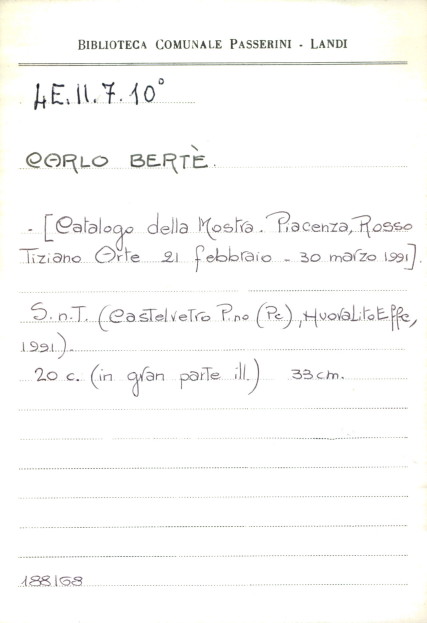 BIBLIOTECA COMUNALE PASSERINI - LANDI
4E.II.7.10°
CARLO BERTÈ.
- [Catalogo della Mostra. Piacenza, Rosso
Tiziano Arte 21 febbraio - 30 marzo 1991].
S.n.T. (Castelvetro P.no (Pc), NuovaLitoEffe,
1991).
20 c. (in gran parte ill.) 33 cm.
188168